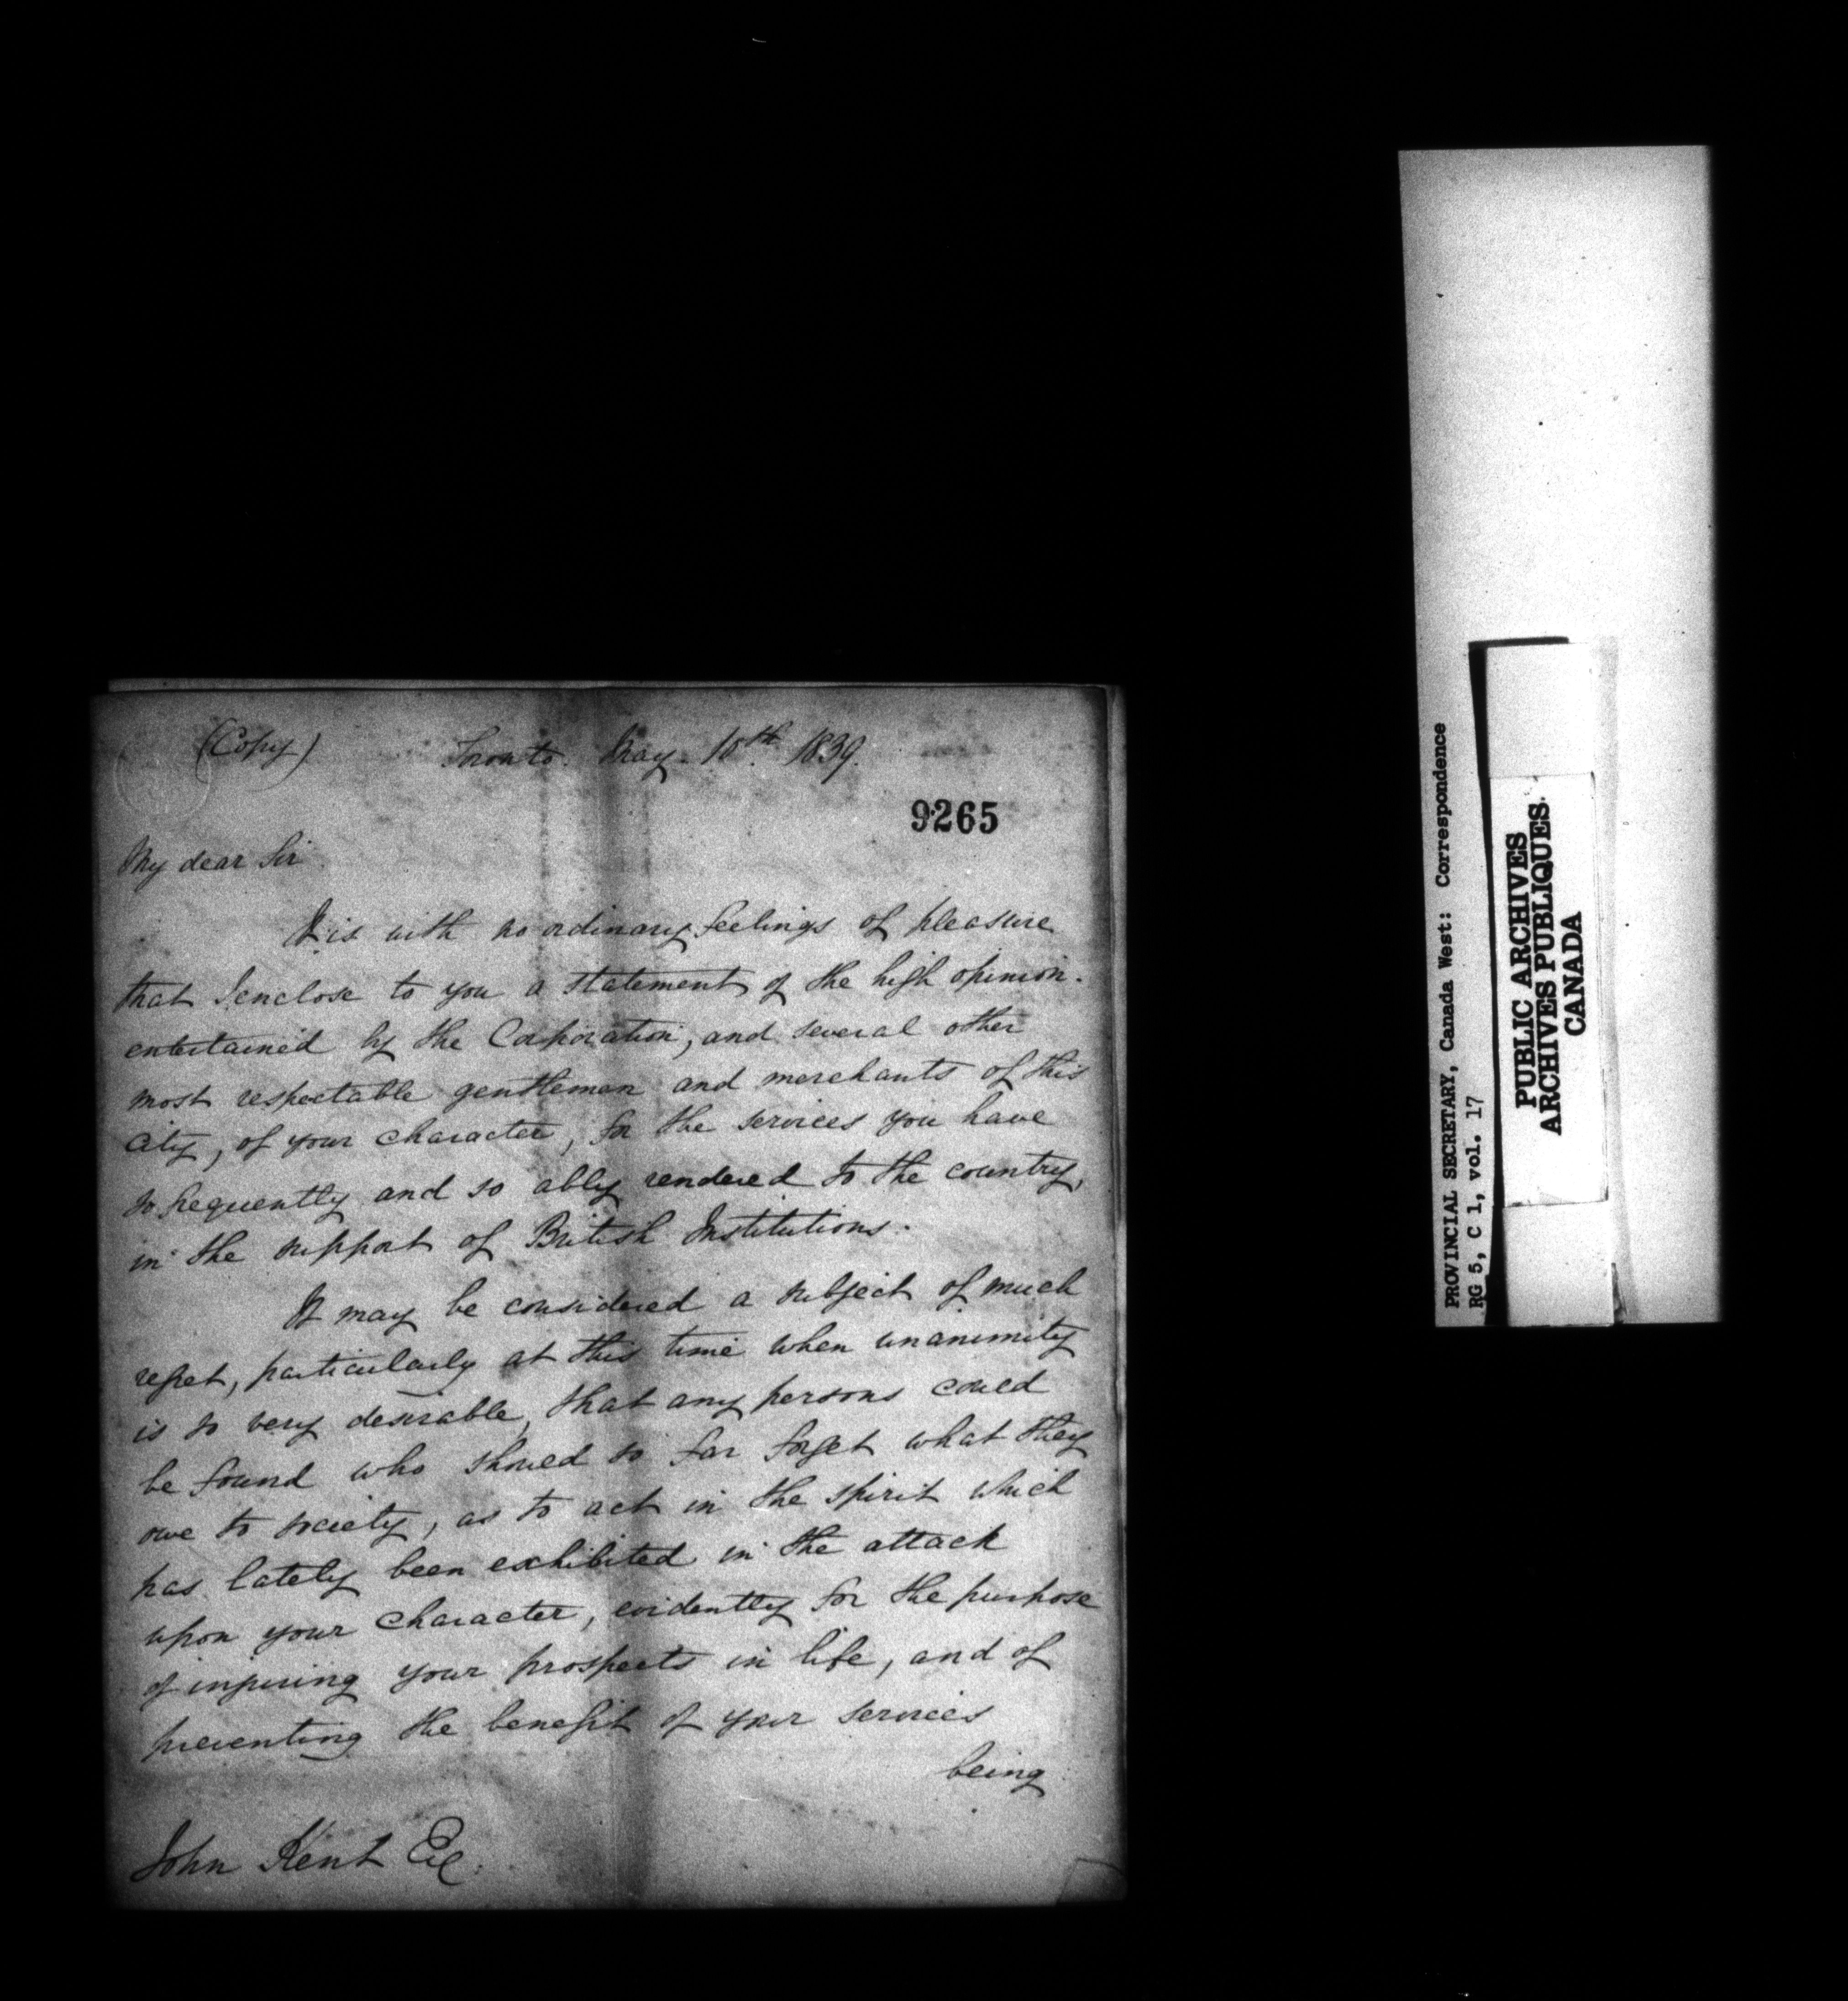 (Copy) Toronto. May. 10th. 1839.
9265
My dear Sir
It is with no ordinary feelings of pleasure
that I enclose to you a statement of the high opinion.
entertained by the Corporation, and several other
most respectable gentlemen and merchants of this
City, of your character, for the services you have
so frequently and so ably rendered to the country,
in the support of British Institutions.
It may be considered a subject of much
regret, particularly at this time when unanimity
is so very desirable, that any persons could
be found who should so far forget what they
owe to society, as to act in the spirit which
has lately been exhibited in the attack
upon your character, evidently for the purpose
of injuring your prospects in life, and of
preventing the benefit of your services
being
John Kent Esq.
PROVINCIAL SECRETARY, Canada West: Correspondence
RG 5, C 1, vol. 17
PUBLIC ARCHIVES
ARCHIVES PUBLIQUES
CANADA